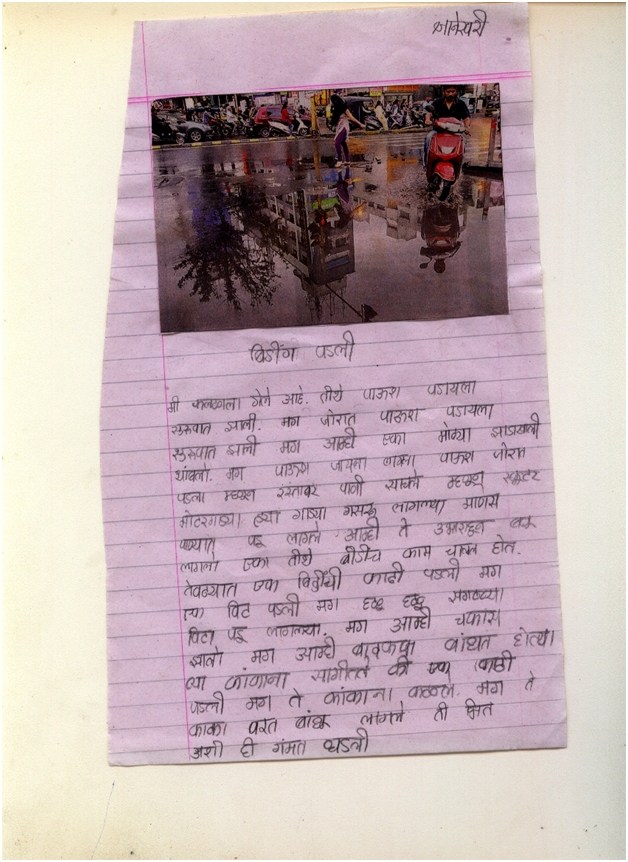 ज्ञानेश्वरी
बिडींग पडली
मी कलकत्याला गेले आहे. तीथे पाऊश पडायला
सुरूवात झाली. मग जोरात पाऊश पडायला
सुरूवात झाली मग आम्ही एका मोठ्या झाडाखाली
थांबलो. मग पाऊश जायला लागला पाऊश जोरात
पडला म्हणून रस्तावर पानी साचले म्हणून स्कूटर
मोटरगाड्या ह्या गाड्या गसरू लागल्या माणस
पाण्यात पडू लागले आम्ही ते उभाराहून बघू
लागलो एका तीथे बीडींच काम चालू होत.
तेवढ्यात एका बिडींची काठी पडली मग
एक विट पडली मग हळू हळू सगळ्या
विटा पडू लागल्या. मग आम्ही चकीत
झालो मग आम्ही बांधत होत्या
त्या कांकाना सांगीतले की एक काठी
पडली मग ते कांकाना कळले. मग ते
काका परत बांधू लागले ती भित
अशी ही गंमत घडली